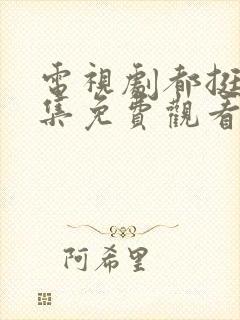 電視劇都挺
集免費觀看
阿希里